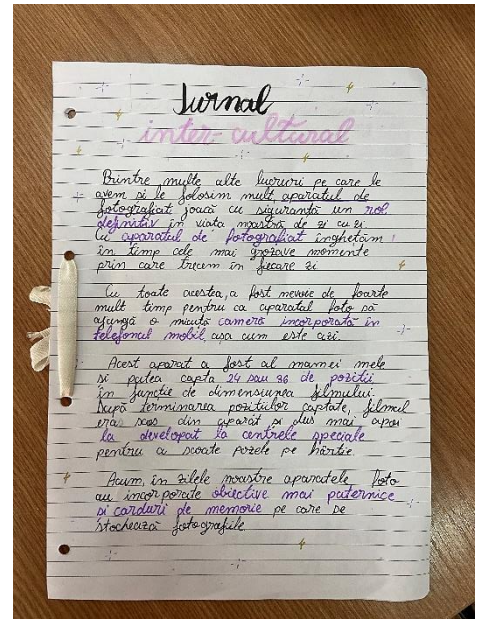 Jurnal
inter-cultural
Printre multe alte lucruri pe care le
avem și le folosim mult, aparatul de
fotografiat joacă cu siguranță un rol
definitiv în viața noastră de zi cu zi.
Cu aparatul de fotografiat înghețăm
în timp cele mai grozave momente
prin care trecem în fiecare zi.
Cu toate acestea, a fost nevoie de foarte
mult timp pentru ca aparatul foto să
ajungă o micuță cameră incorporată în
telefonul mobil, așa cum este azi.
Acest aparat a fost al mamei mele
și putea capta 24 sau 36 de poziții
în funcție de dimensiunea filmului.
După terminarea pozițiilor captate, filmul
era scos din aparat și dus mai apoi
la developat la centrele speciale
pentru a scoate pozele pe hârtie.
Acum, în zilele noastre aparatele foto
au incorporate obiective mai puternice
și carduri de memorie pe care se
stochează fotografiile.